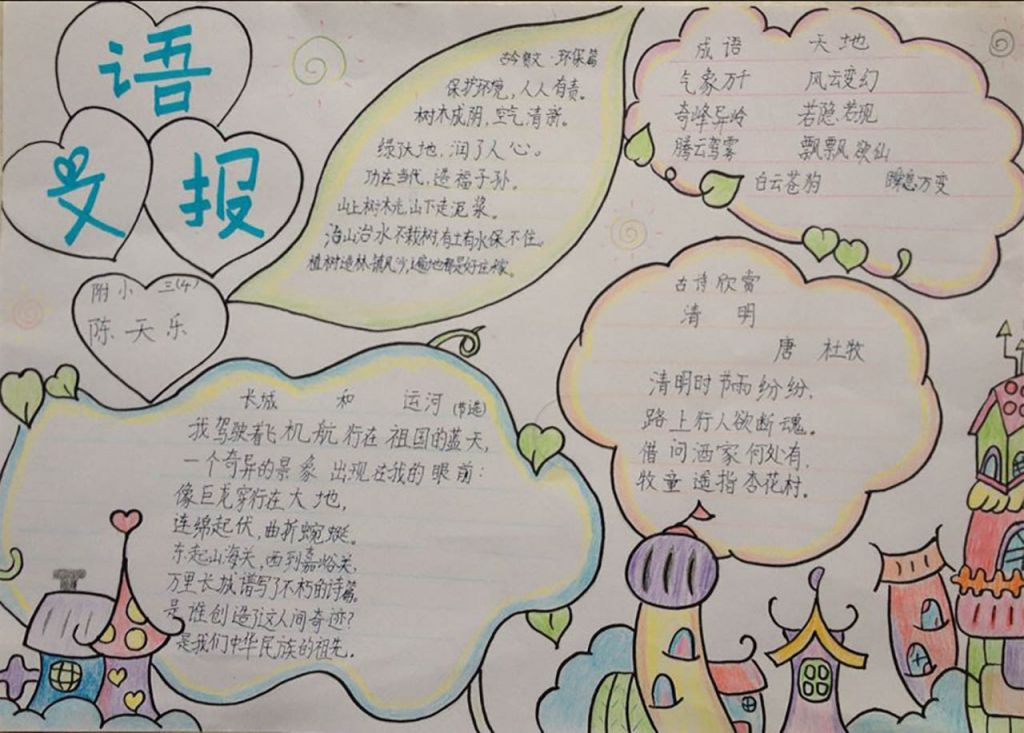 语
文 报
附小 三(4)
陈天乐
古今贤文·环保篇
保护环境,人人有责。
树木成阴,空气清新。
绿化大地,润了人心。
功在当代,造福子孙。
山上树木光,山下走泥浆。
治山治水不栽树,有土有水保不住。
植树造林,镇风沙,遍地都是好庄稼。
成语 天地
气象万千 风云变幻
奇峰异岭 若隐若现
腾云驾雾 飘飘欲仙
白云苍狗 瞬息万变
古诗欣赏
清 明
唐 杜牧
清明时节雨纷纷,
路上行人欲断魂。
借问酒家何处有,
牧童遥指杏花村。
长城 和 运河(节选)
我驾驶着飞机航行在祖国的蓝天,
一个奇异的景象出现在我的眼前:
像巨龙穿行在大地,
连绵起伏,曲折蜿蜒。
东起山海关,西到嘉峪关,
万里长城谱写了不朽的诗篇。
是谁创造了这人间奇迹?
是我们中华民族的祖先。